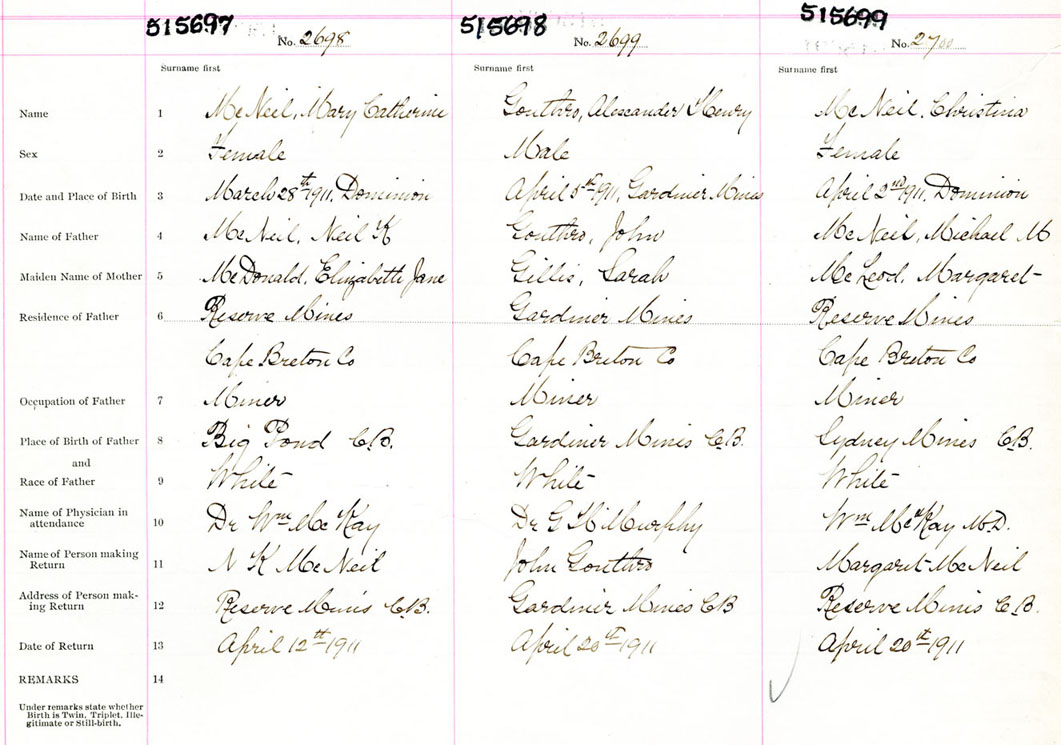 515697 515698 515699
No. 2698 No. 2699 No. 2700
Surname first Surname first Surname first
Name 1 McNeil, Mary Catherine Gouthro, Alexander Henry McNeil, Christina
Sex 2 Female Male Female
Date and Place of Birth 3 March 28th 1911, Dominion April 5th 1911, Gardiner Mines April 2nd 1911, Dominion
Name of Father 4 McNeil, Neil K Gouthro, John McNeil, Michael M
Maiden Name of Mother 5 McDonald, Elizabeth Jane Gillis, Sarah McLeod, Margaret
Residence of Father 6 Reserve Mines Gardiner Mines Reserve Mines
Cape Breton Co Cape Breton Co Cape Breton Co
Occupation of Father 7 Miner Miner Miner
Place of Birth of Father 8 Big Pond C.B. Gardiner Mines C.B. Sydney Mines C.B.
and
Race of Father 9 White White White
Name of Physician in
attendance 10 Dr Wm McKay Dr G H Murphy Wm McKay M.D.
Name of Person making
Return 11 N K McNeil John Gouthro Margaret McNeil
Address of Person mak-
ing Return 12 Reserve Mines C.B. Gardiner Mines CB Reserve Mines C.B.
Date of Return 13 April 12th 1911 April 20th 1911 April 20th 1911
REMARKS 14
Under remarks state whether
Birth is Twin, Triplet, Ille-
gitimate or Still-birth.